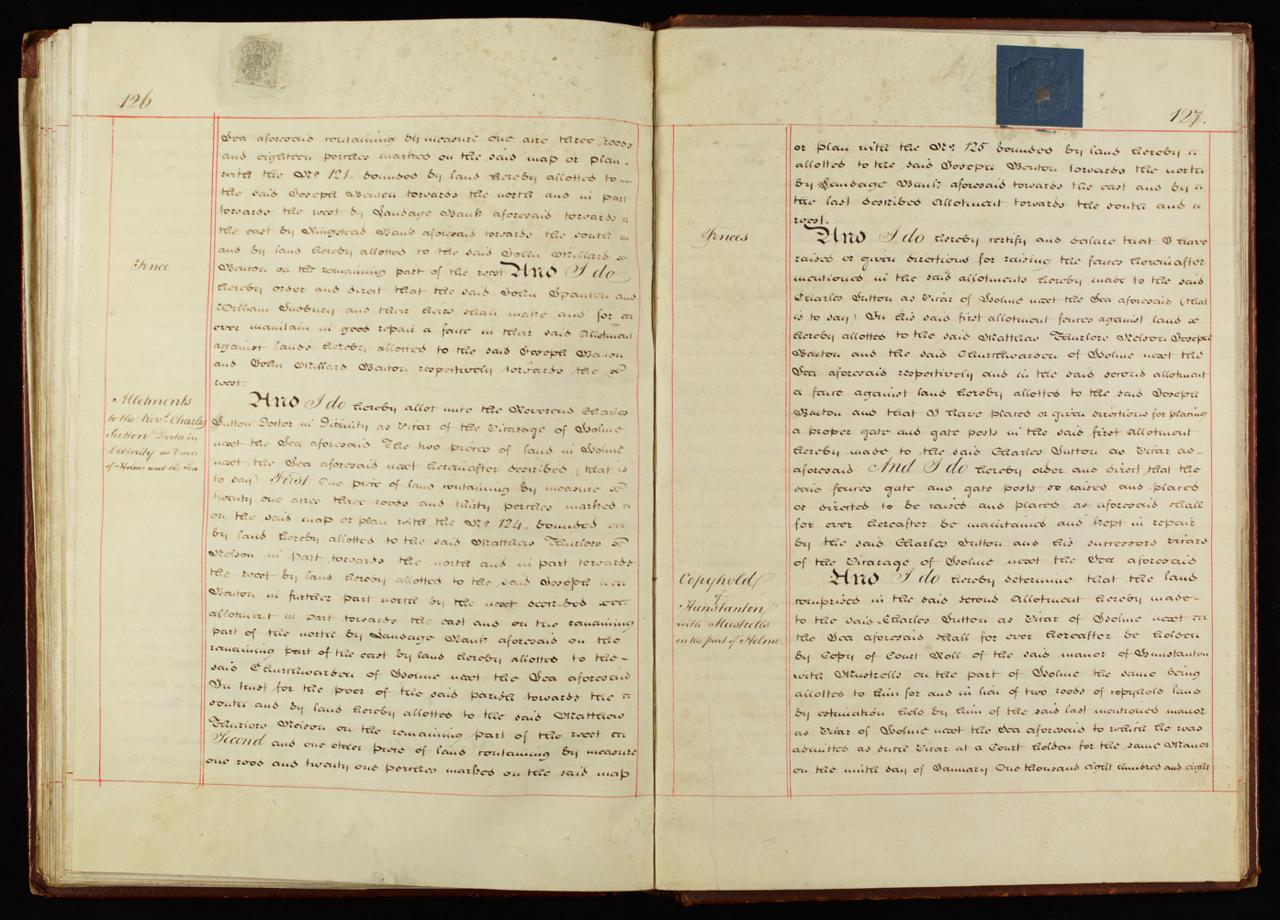 126
Sea aforesaid containing by measure one acre three roods
and eighteen perches marked on the said map or plan
with the No. 121. bounded by land hereby allotted to
the said Joseph Beaton towards the north and in part
towards the west by Landage Bank aforesaid towards
the east by Ringstead Bank aforesaid towards the south
and by land hereby allotted to the said John Willard
Beaton on the remaining part of the west And I do
hereby order and direct that the said John Spanton and
William Sudbury and their heirs shall make and for
ever maintain in good repair a fence in their said Allotment
against lands hereby allotted to the said Joseph Beaton
and John Willard Beaton respectively towards the
west.
And I do hereby allot unto the Reverend Charles
Sutton Doctor in Divinity as Vicar of the Vicarage of Holme
next the Sea aforesaid The two pieces of land in Holme
next the Sea aforesaid next hereinafter described (that is
to say) First One piece of land containing by measure
twenty one acres three roods and thirty perches marked
on the said map or plan with the No. 124. bounded
by land hereby allotted to the said Matthew Thurlow
Nelson in part towards the north and in part towards
the west by land hereby allotted to the said Joseph
Beaton in further part north by the next described
allotment in part towards the east and on the remaining
part of the north by Landage Bank aforesaid on the
remaining part of the east by land hereby allotted to the
said Churchwarden of Holme next the Sea aforesaid
In trust for the poor of the said parish towards the
south and by land hereby allotted to the said Matthew
Thurlow Nelson on the remaining part of the west
Second and one other piece of land containing by measure
one rood and twenty one perches marked on the said map
Fence
Allotments
to the Revd. Charles
Sutton Doctor in
Divinity as Vicar
of Holme next the Sea
127.
or plan with the No. 125 bounded by land hereby
allotted to the said Joseph Beaton towards the north
by Landage Bank aforesaid towards the east and by
the last described Allotment towards the south and
west.
And I do hereby certify and declare that I have
raised or given directions for raising the fences hereinafter
mentioned in the said allotments hereby made to the said
Charles Sutton as Vicar of Holme next the Sea aforesaid (that
is to say) In his said first allotment fences against land
hereby allotted to the said Matthew Thurlow Nelson Joseph
Beaton and the said Churchwarden of Holme next the
Sea aforesaid respectively and in the said second allotment
a fence against land hereby allotted to the said Joseph
Beaton and that I have placed or given directions for placing
a proper gate and gate posts in the said first Allotment
hereby made to the said Charles Sutton as Vicar as
aforesaid And I do hereby order and direct that the
said fences gate and gate posts so raised and placed
or directed to be raised and placed as aforesaid shall
for ever hereafter be maintained and kept in repair
by the said Charles Sutton and his successors vicars
of the Vicarage of Holme next the Sea aforesaid
And I do hereby determine that the land
comprised in the said second Allotment hereby made
to the said Charles Sutton as Vicar of Holme next
the Sea aforesaid shall for ever hereafter be holden
by Copy of Court Roll of the said manor of Hunstanton
with Mustrells on the part of Holme the same being
allotted to him for and in lieu of two roods of copyhold land
by estimation held by him of the said last mentioned manor
as Vicar of Holme next the Sea aforesaid to which he was
admitted as such Vicar at a Court holden for the same Manor
on the ninth day of January One thousand eight hundred and eight
Fences
Copyhold
of
Hunstanton
with Mustrells
on the part of Holme.